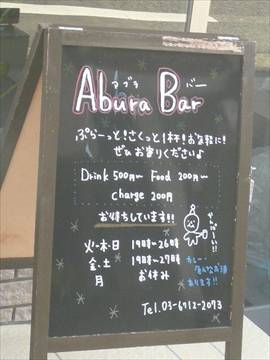 アブラ バー
Abura Bar
ぷらーっと!さくっと1杯!お気軽に!
ぜひお寄りください♪
Drink 500円〜 Food 200円〜
Charge 200円
お待ちしています!!
火・木・日 19時〜26時
金、土 19時〜27時
月 お休み
カレー
あります!!
Tel.03-6912-2073